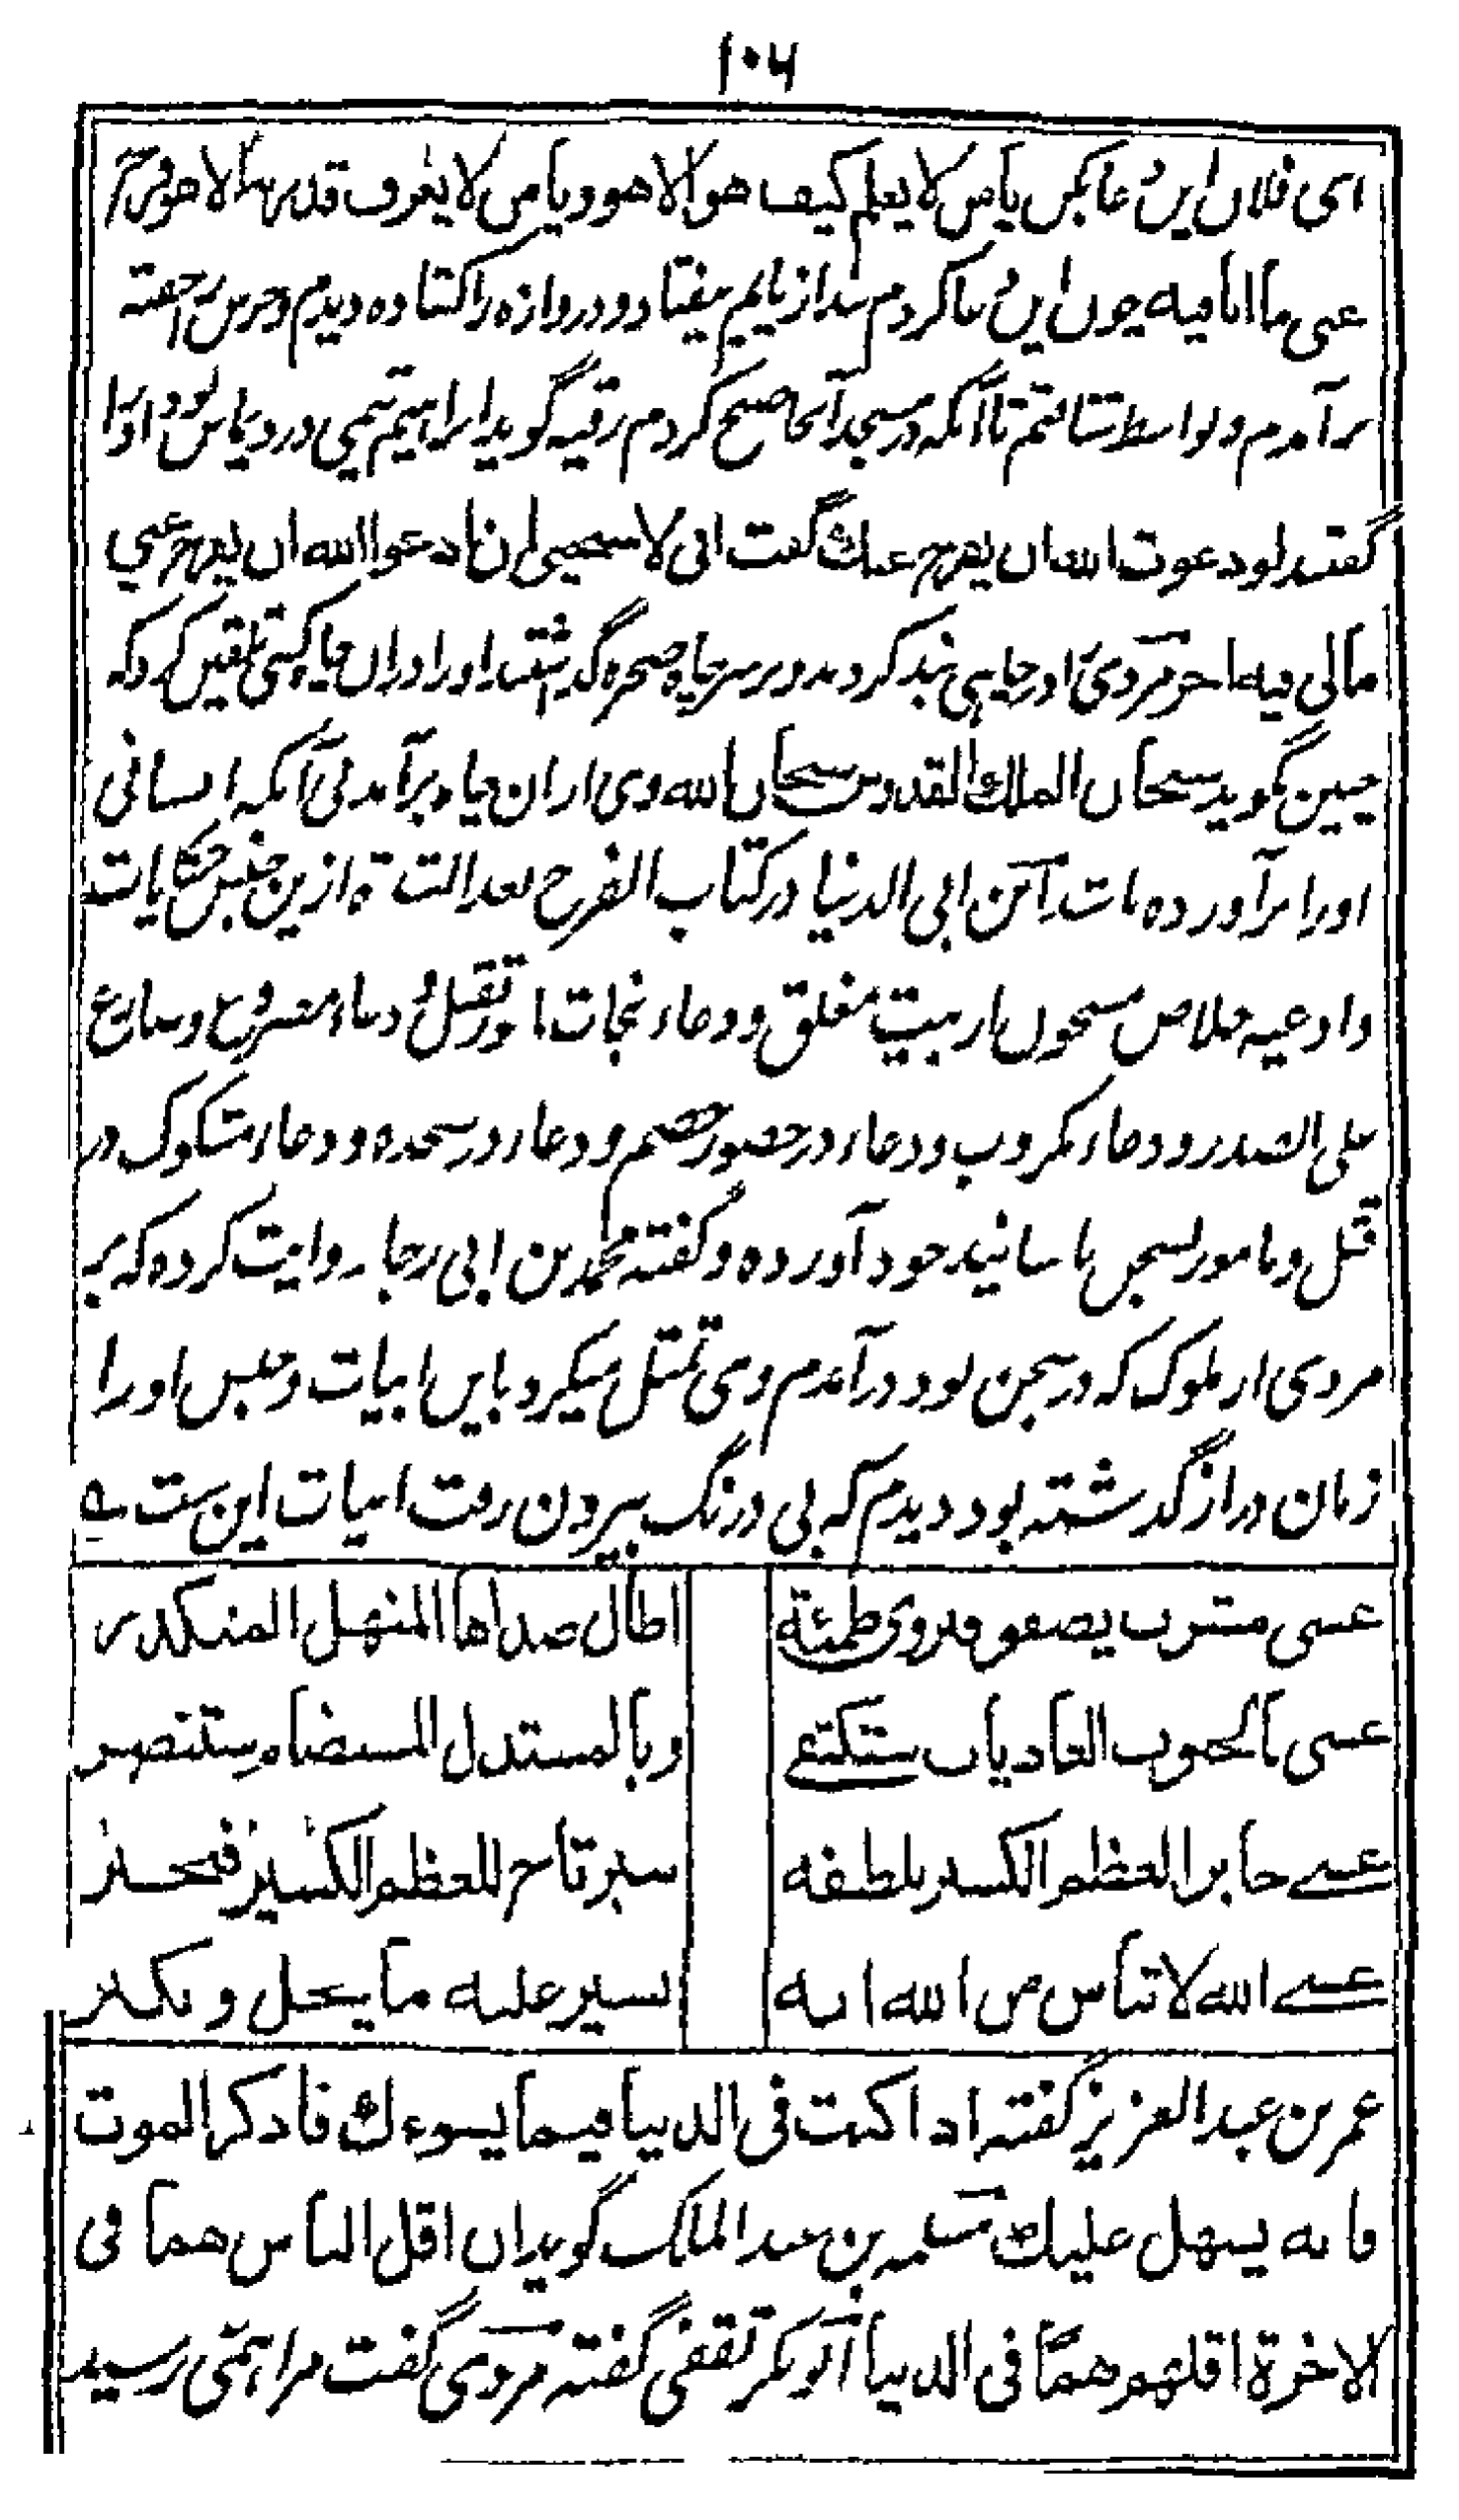 ۱۰۶
ای فلان این دعا بکن یا من لا یعلم کیف هو الا هو و یا من لا یعرف قدرته الا هو فرج
عنی ما انا فیه چون این دعا کردم بند از پایم بیفتاد و در دروازه را کشاده دیدم و حرس را خفته
بر آمدم و بواسط شتافتم تا آنکه در مسجد آنجا صبح کردم رقبه گوید ابراهیم تیمی در دیماس بود او را
گفتند لو دعوت الله ان یفرج عنك گفت انی لاستحیی ان ادعوا الله ان یفرج عنی
مالی فیه اجر مردی را در چاهی بند کردند و بر سر چاه صخره گذاشتند او را در آن چاه کسی تلقین کرد که
چنین گوید سبحان الملك القدوس سبحان الله وی از ان چاه برآمد بی آنکه انسانی
اورا برآورده باشد ابن ابی الدنیا در کتاب الفرج بعد الشدة ازین جنس حکایات
وادعیه خلاص مسجون از بیت مغلق و دعاء نجات مأمور بقتل و دعاء مصروع و
علی الصدر و دعاء مکروب و دعاء در حضور خصم و دعاء در سجده و دعاء مشکوک در
قتل و مامور بسجن باسانید خود آورده و گفته محمد بن ابی رجاء روایت کرده که بر
مردی از ملوک که در سجن بود در آمدم وی تمثل میکرد باین ابیات و حبس او را
زمان دراز گذشته بود دیدم که بی درنگ بیرون رفت ابیات این ست
عسى مشرب يصفو فيروي ظمئة
اطال صداها المنهل المتكدر
عسى بالجنوب العاديات ستكتسى
وبالمستدل المستضام ستنصر
عسى جابر العظم الكسير بلطفه
سيرتاح للعظم الكسير فيجبر
عسى الله لا تيأس من الله انه
يسير عليه ما يجل ويكبر
عمر بن عبد العزیز گفته اذا كنت فى الدنيا فيما يسوءك فاذكر الموت
فانه يسهل عليك مسلمه بن عبد الملک گوید ان اقل الناس هما فى
الاخرة اقلهم هما فى الدنيا ابو بکر ثقفی گفته مردی گفت مرا همّی رسید